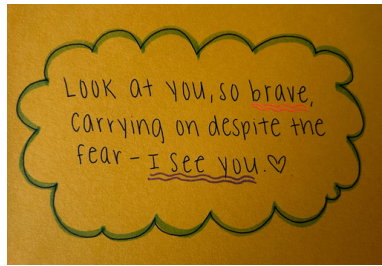 Look at you, so brave,
carrying on despite the
fear - I see you.♡